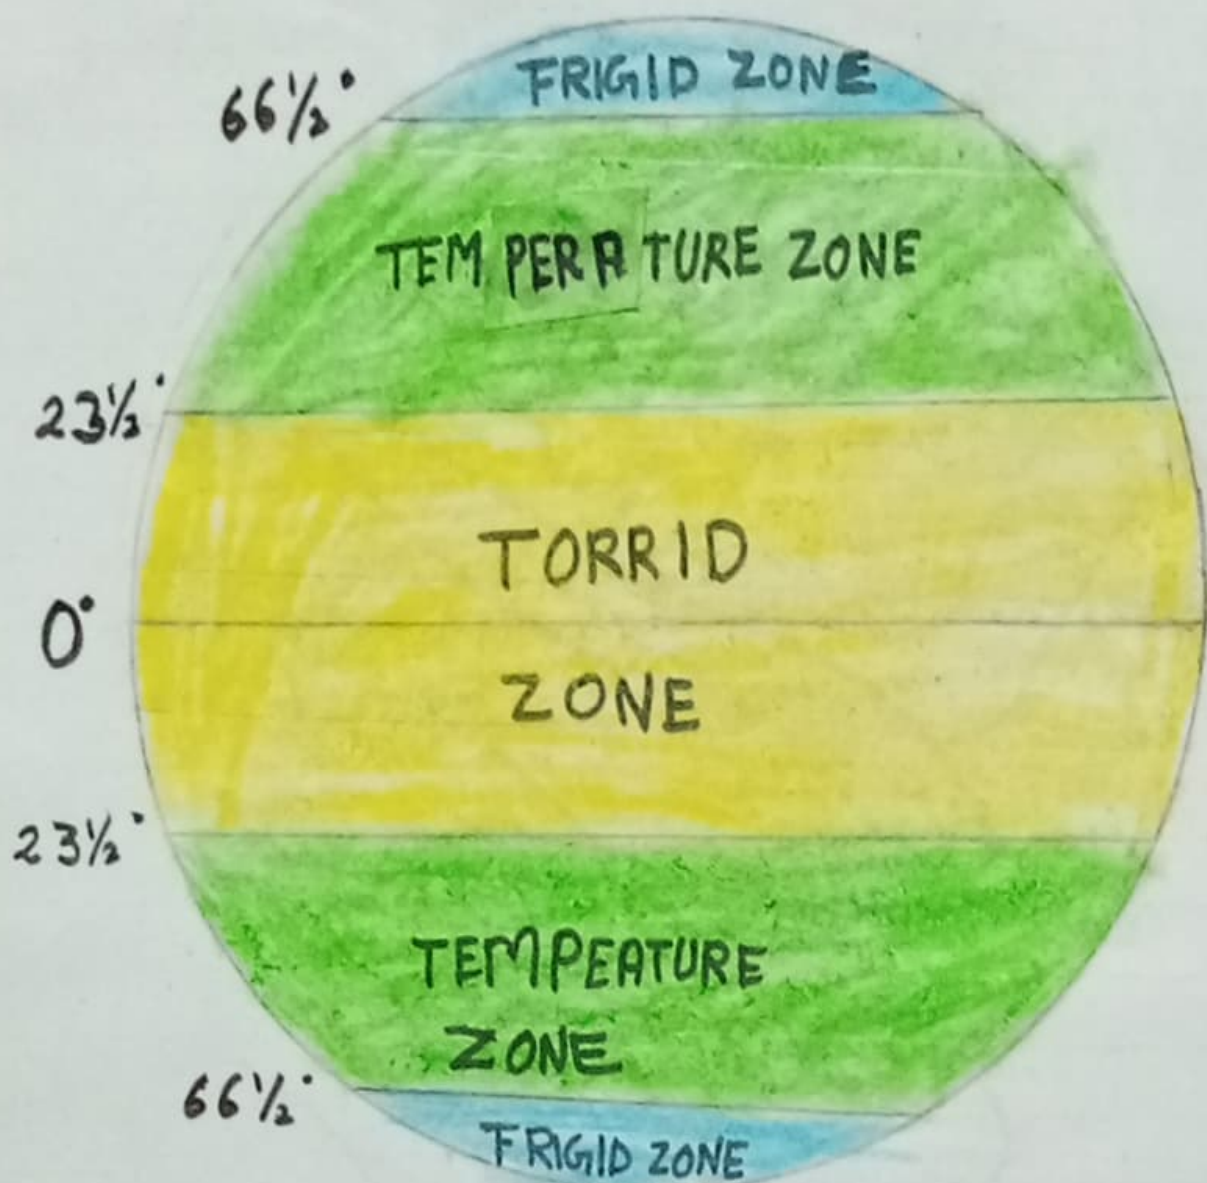 FRIGID ZONE
66½°
TEMPERATURE ZONE
23½°
TORRID
0°
ZONE
23½°
TEMPEATURE
ZONE
66½°
FRIGID ZONE